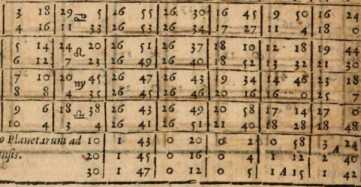 3 18 29 5 26 55 26 30 16 45 9 50 16 24
4 16 11 33 26 53 26 34 17 27 11 4 18 0
5 14 24 20 26 51 26 37 18 10 12 18 19
6 12 7 21 26 49 26 40 18 52 13 32 21
7 10 20 45 26 47 26 43 9 34 14 46 23 18
8 8 4 26 45 26 46 20 16 16 0 25
9 6 18 38 26 43 26 49 20 58 17 14 27 0
10 4 3 4 26 41 26 51 21 40 18 28 28 48
o Planetarum ad 10 1 43 0 20 0 2 0 58 3 A 24
20 1 45 0 16 0 4 1 12 2 40
30 1 47 0 12 0 5 1 A 15 1 42